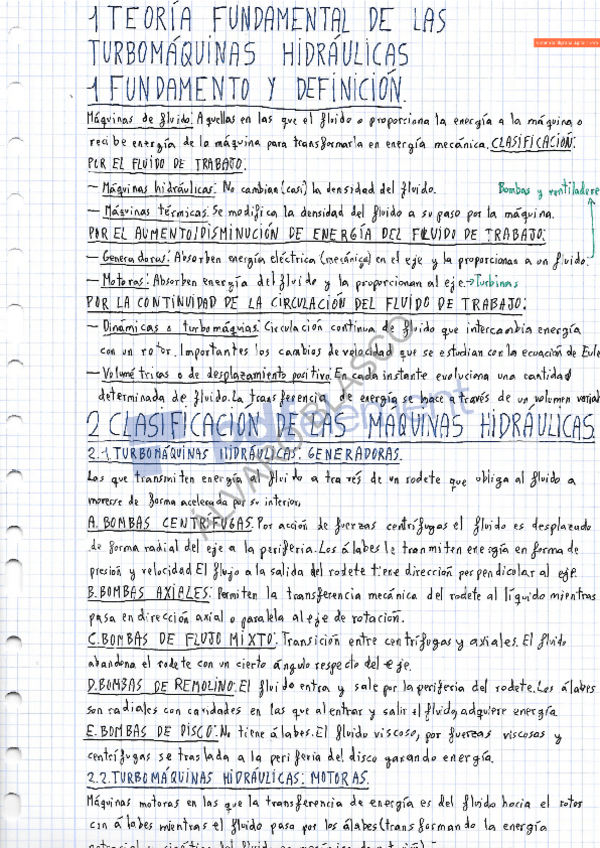 1 TEORÍA FUNDAMENTAL DE LAS
TURBOMÁQUINAS HIDRÁULICAS
1 FUNDAMENTO Y DEFINICIÓN.
Máquinas de fluido: Aquellas en las que el fluido o proporciona la energía a la máquina o
recibe energía de la máquina para transformarla en energía mecánica. CLASIFICACIÓN:
POR EL FLUIDO DE TRABAJO.
- Máquinas hidráulicas: No cambian (casi) la densidad del fluido.
Bombas y ventiladore
- Máquinas térmicas: Se modifica la densidad del fluido a su paso por la máquina.
POR EL AUMENTO/DISMINUCIÓN DE ENERGÍA DEL FLUIDO DE TRABAJO:
- Generadoras: Absorben energía eléctrica (mecánica) en el eje y la proporcionan a un fluido.
- Motoras: Absorben energía del fluido y la proporcionan al eje. → Turbinas
POR LA CONTINUIDAD DE LA CIRCULACIÓN DEL FLUIDO DE TRABAJO:
- Dinámicas o turbomáquias: Circulación continua de fluido que intercambia energía
con un rotor. Importantes los cambios de velocidad que se estudian con la ecuación de Eule
- Volumétricas o de desplazamiento positivo: En cada instante evoluciona una cantidad
determinada de fluido. La transferencia de energía se hace a través de un volumen variab
2 CLASIFICACIÓN DE LAS MÁQUINAS HIDRÁULICAS
2.1 TURBOMÁQUINAS HIDRÁULICAS: GENERADORAS.
Las que transmiten energía al fluido a través de un rodete que obliga al fluido a
moverse de forma acelerada por su interior.
A. BOMBAS CENTRÍFUGAS. Por acción de fuerzas centrífugas el fluido es desplazado
de forma radial del eje a la periferia. Los álabes le tranmiten energía en forma de
presión y velocidad El flujo a la salida del rodete tiene dirección perpendicolar al eje.
B. BOMBAS AXIALES: Permiten la transferencia mecánica del rodete al líquido mientras
pasa en dirección axial o paralela al eje de rotación.
C. BOMBAS DE FLUJO MIXTO: Transición entre centrífugas y axiales. El fluido
abandona el rodete con un cierto ángulo respecto del eje.
D. BOMBAS DE REMOLINO: El fluido entra y sale por la periferia del rodete. Los álabes
son radiales con cavidades en las que al entrar y salir el fluido, adquiere energía
E. BOMBAS DE DISCO: No tiene álabes. El fluido viscoso, por fuerzas viscosas y
centrífugas se traslada a la periferia del disco ganando energía.
2.2. TURBOMÁQUINAS HIDRÁULICAS: MOTORAS.
Máquinas motoras en las que la transferencia de energía es del fluido hacia el rotor
con álabes mientras el fluido pasa por los álabes (transformando la energía
ÁLVARO BLASCO